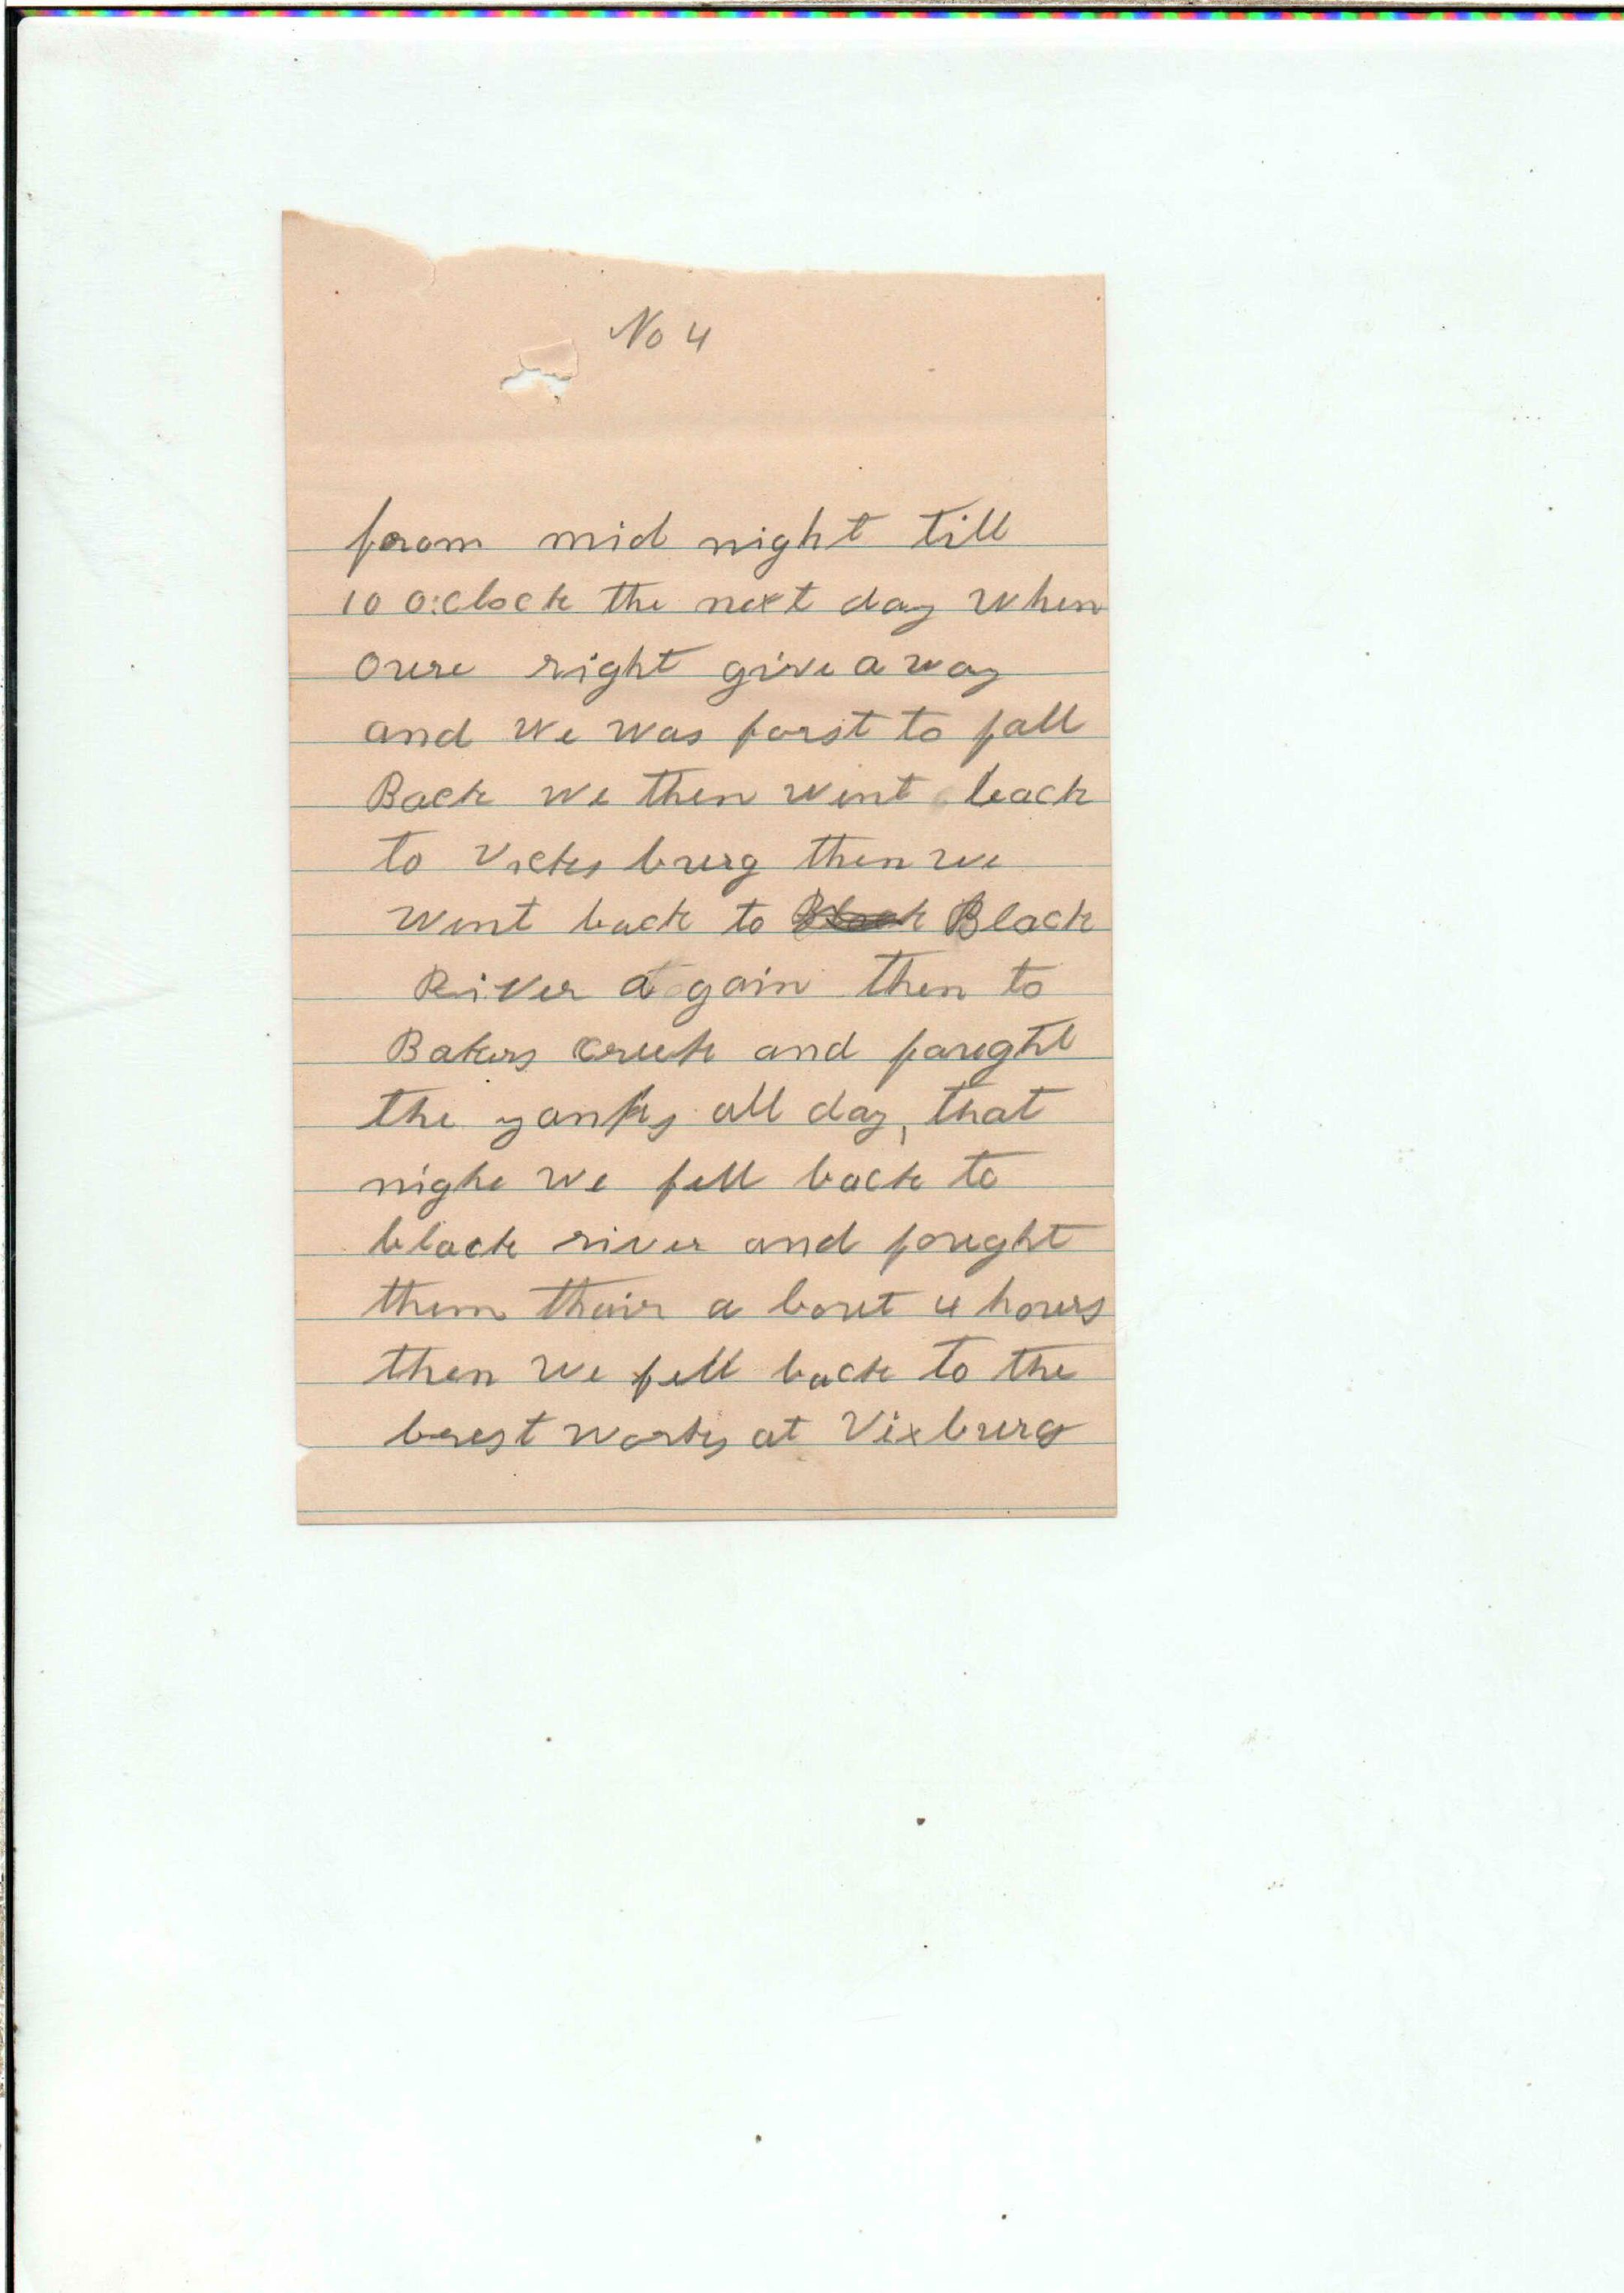 No 4
from mid night till
10 O:clock the next day when
oure right give a way
and we was forst to fall
Back we then went back
to Vicks burg then we
went back to Black Black
River a gain then to
Bakers creek and fought
the yanks all day, that
nighe we fell back to
black river and fought
them thair a bout 4 hours
then we fell back to the
brest works at Vixburg